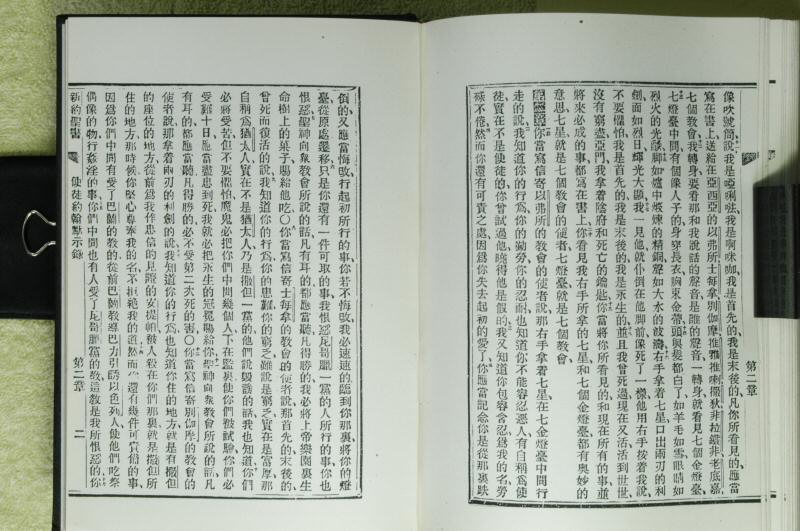 像吹號筒說我是啊咪咖我是首先的我是末後的凡你所看見的應當
寫在書上送給在亞西亞的以弗所士每拿別伽摩推雅推喇撒狄非拉鐵非老底嘉
七個教會我轉身要看那和我說話的聲音是誰的聲音一轉身就看見七個金燈臺
七燈臺中間有一個像人子的身穿長衣胸束金帶頭與髮都白了如羊毛如雪眼睛如
烈火的光燄脚如爐中煅煉的精銅聲如大水的波濤右手拿着七星口出兩刃的利
劍面如烈日輝光大顯我一見他就仆倒在他脚前像死了一樣他用右手按着我說
不要懼怕我是首先的我是末後的我是永生的並且我曾死過現在又活活到世世
沒有窮盡亞門我拿着陰府和死亡的鑰匙你當將你所看見的和現在所有的事並
將來必成的事都寫在書上你看見我右手所拿的七星和七個金燈臺都有奧妙的
意思七星就是七個教會的使者七燈臺就是七個教會
第二章你當寫信寄以弗所的教會的使者說那右手拿着七星在七金燈臺中間行
走的說我知道你的行爲你的勤勞你的忍耐也知道你不能容忍惡人有自稱爲使
徒實在不是使徒的你曾試過他曉得他是假的我又知道你包容含忍爲我的名勞
碌不倦然而你還有可責之處因爲你失去起初的愛了你應當記念你是從那裏跌
第二章
倒的又應當悔改行起初所行的事你若不悔改我必速速的臨到你那裏將你的燈
臺從原處遷移只是你還有一件可取的事我恨惡尼哥臘一黨的人所行的事你也
恨惡聖神向衆教會所說的話凡有耳的都應當聽凡得勝的我必將上帝樂園裏生
命樹上的菓子賜給他吃〇你當寫信寄士每拿的教會的使者說那首先的末後的
曾死而復活的說我知道你的行爲你的患難你的窮乏雖說是窮乏實在是富厚那
自稱爲猶太人實在不是猶太人乃是撒但一黨的他們說毀謗的話我也知道你們
必將受苦但不要懼怕魔鬼必把你們中間幾個人下在監裏使你們被試驗你們必
受難十日應當盡忠到死我就必把永生的冠冕賜給你聖神向衆教會所說的話凡
有耳的都應當聽凡得勝的必不受第二次死的害〇你當寫信寄別伽摩的教會的
使者說那拿着兩刃的利劍的說我知道你的行爲也知道你住的地方就是有撒但
的座位的地方從前爲我作忠信的見證的安提帕被人殺在你們那裏就是撒但所
住的地方那時候你堅心尊奉我的名不拒絕我的道然而你還有幾件可責備的事
因爲你們中間有受了巴蘭的教的從前巴蘭教導巴力引誘以色列人使他們吃祭
偶像的物行姦淫的事你們中間也有人受了尼哥臘一黨的教這教是我所恨惡的你
新約聖書 使徒約翰默示錄 第二章 二